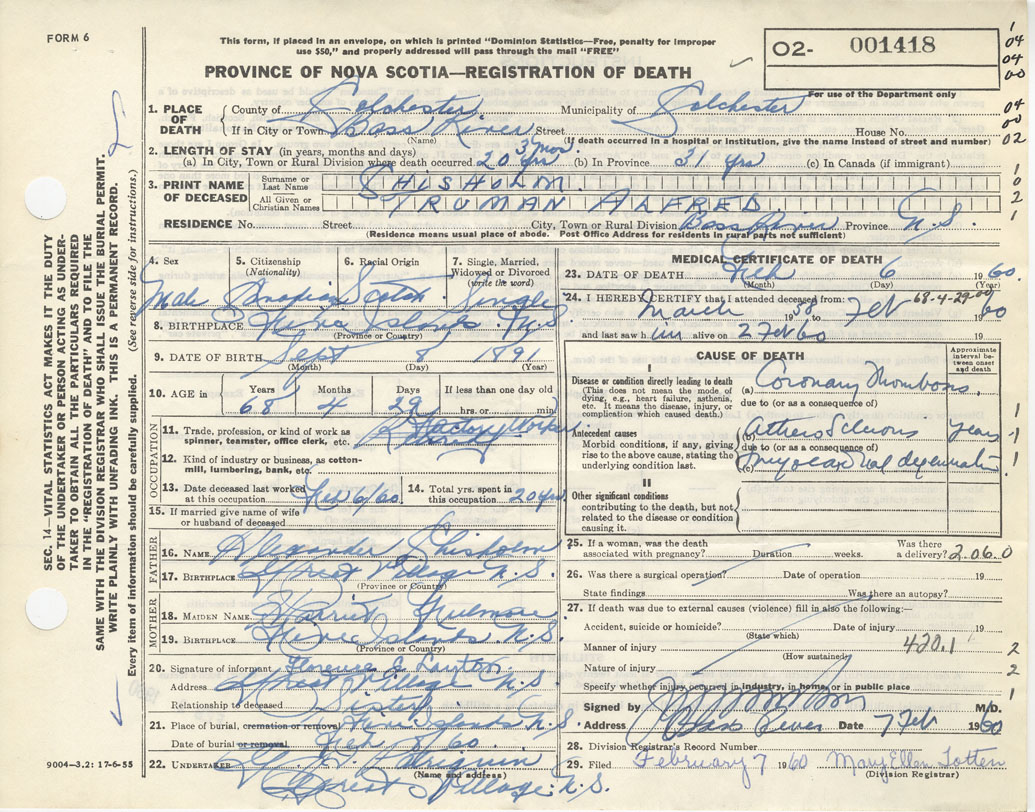 FORM 6
This form, if placed in an envelope, on which is printed "Dominion Statistics—Free, penalty for improper
use $50," and properly addressed will pass through the mail "FREE"
02- 001418
For use of the Department only
PROVINCE OF NOVA SCOTIA—REGISTRATION OF DEATH
1
04
04
00
04
00
02
1
0
2
1
SEC. 14—VITAL STATISTICS ACT MAKES IT THE DUTY
OF THE UNDERTAKER OR PERSON ACTING AS UNDER-
TAKER TO OBTAIN ALL THE PARTICULARS REQUIRED
IN THE "REGISTRATION OF DEATH" AND TO FILE THE
SAME WITH THE DIVISION REGISTRAR WHO SHALL ISSUE THE BURIAL PERMIT.
WRITE PLAINLY WITH UNFADING INK. THIS IS A PERMANENT RECORD.
Every item of information should be carefully supplied. (See reverse side for instructions.)
1. PLACE OF DEATH County of Colchester Municipality of Colchester
If in City or Town Bass River Street House No.
(Name) (If death occurred in a hospital or institution, give the name instead of street and number)
2. LENGTH OF STAY (in years, months and days) 3 Mos
(a) In City, Town or Rural Division where death occurred 20 yrs (b) In Province 31 yrs (c) In Canada (if immigrant)
3. PRINT NAME OF DECEASED Surname or Last Name CHISHOLM
All Given or Christian Names TRUMAN ALFRED
RESIDENCE No. Street City, Town or Rural Division Bass River Province N.S.
(Residence means usual place of abode. Post Office Address for residents in rural parts not sufficient)
4. Sex 5. Citizenship (Nationality) 6. Racial Origin 7. Single, Married, Widowed or Divorced (write the word)
Male Canadian Scotch Single
8. BIRTHPLACE Five Islands N.S.
(Province or Country)
9. DATE OF BIRTH Sept 8 1891
(Month) (Day) (Year)
10. AGE in Years Months Days If less than one day old
68 4 29 hrs. or min.
OCCUPATION
11. Trade, profession, or kind of work as spinner, teamster, office clerk, etc. Factory Worker
12. Kind of industry or business, as cotton-mill, lumbering, bank, etc.
13. Date deceased last worked at this occupation Feb 6/60 14. Total yrs. spent in this occupation 20 yrs
15. If married give name of wife or husband of deceased
FATHER
16. NAME Alexander Chisholm
17. BIRTHPLACE Great Village N.S.
(Province or Country)
MOTHER
18. MAIDEN NAME Harriet
19. BIRTHPLACE Five Islands N.S.
(Province or Country)
20. Signature of informant Florence E. Layton
Address Great Village N.S.
Relationship to deceased Sister
21. Place of burial, cremation or removal Five Islands N.S.
Date of burial or removal Feb 8/60
22. UNDERTAKER
(Name and address)
Great Village N.S.
9004-3.2: 17-6-55
MEDICAL CERTIFICATE OF DEATH
23. DATE OF DEATH Feb 6 1960
(Month) (Day) (Year)
24. I HEREBY CERTIFY that I attended deceased from: 68-4-29-00
March 1958 to Feb 1960
and last saw him alive on 2 Feb 60
CAUSE OF DEATH
Approximate interval between onset and death
I
Disease or condition directly leading to death
(This does not mean the mode of dying, e.g., heart failure, asthenia, etc. It means the disease, injury, or complication which caused death.)
(a) Coronary Thrombosis
due to (or as a consequence of)
Antecedent causes
Morbid conditions, if any, giving rise to the above cause, stating the underlying condition last.
(b) years 1
due to (or as a consequence of)
(c) myocardial degeneration 1
II
Other significant conditions
contributing to the death, but not related to the disease or condition causing it.
25. If a woman, was the death associated with pregnancy? Duration weeks. Was there a delivery? 2.06.0
26. Was there a surgical operation? Date of operation 19
State findings Was there an autopsy?
27. If death was due to external causes (violence) fill in also the following:—
Accident, suicide or homicide? Date of injury 19
(State which)
Manner of injury 420.1 2
(How sustained)
Nature of injury 2
Specify whether injury occurred in industry, in home, or in public place 1
Signed by M.D.
Address Bass River Date 7 Feb 1960
28. Division Registrar's Record Number
29. Filed February 7 1960 Mary Ellen Totten
(Division Registrar)